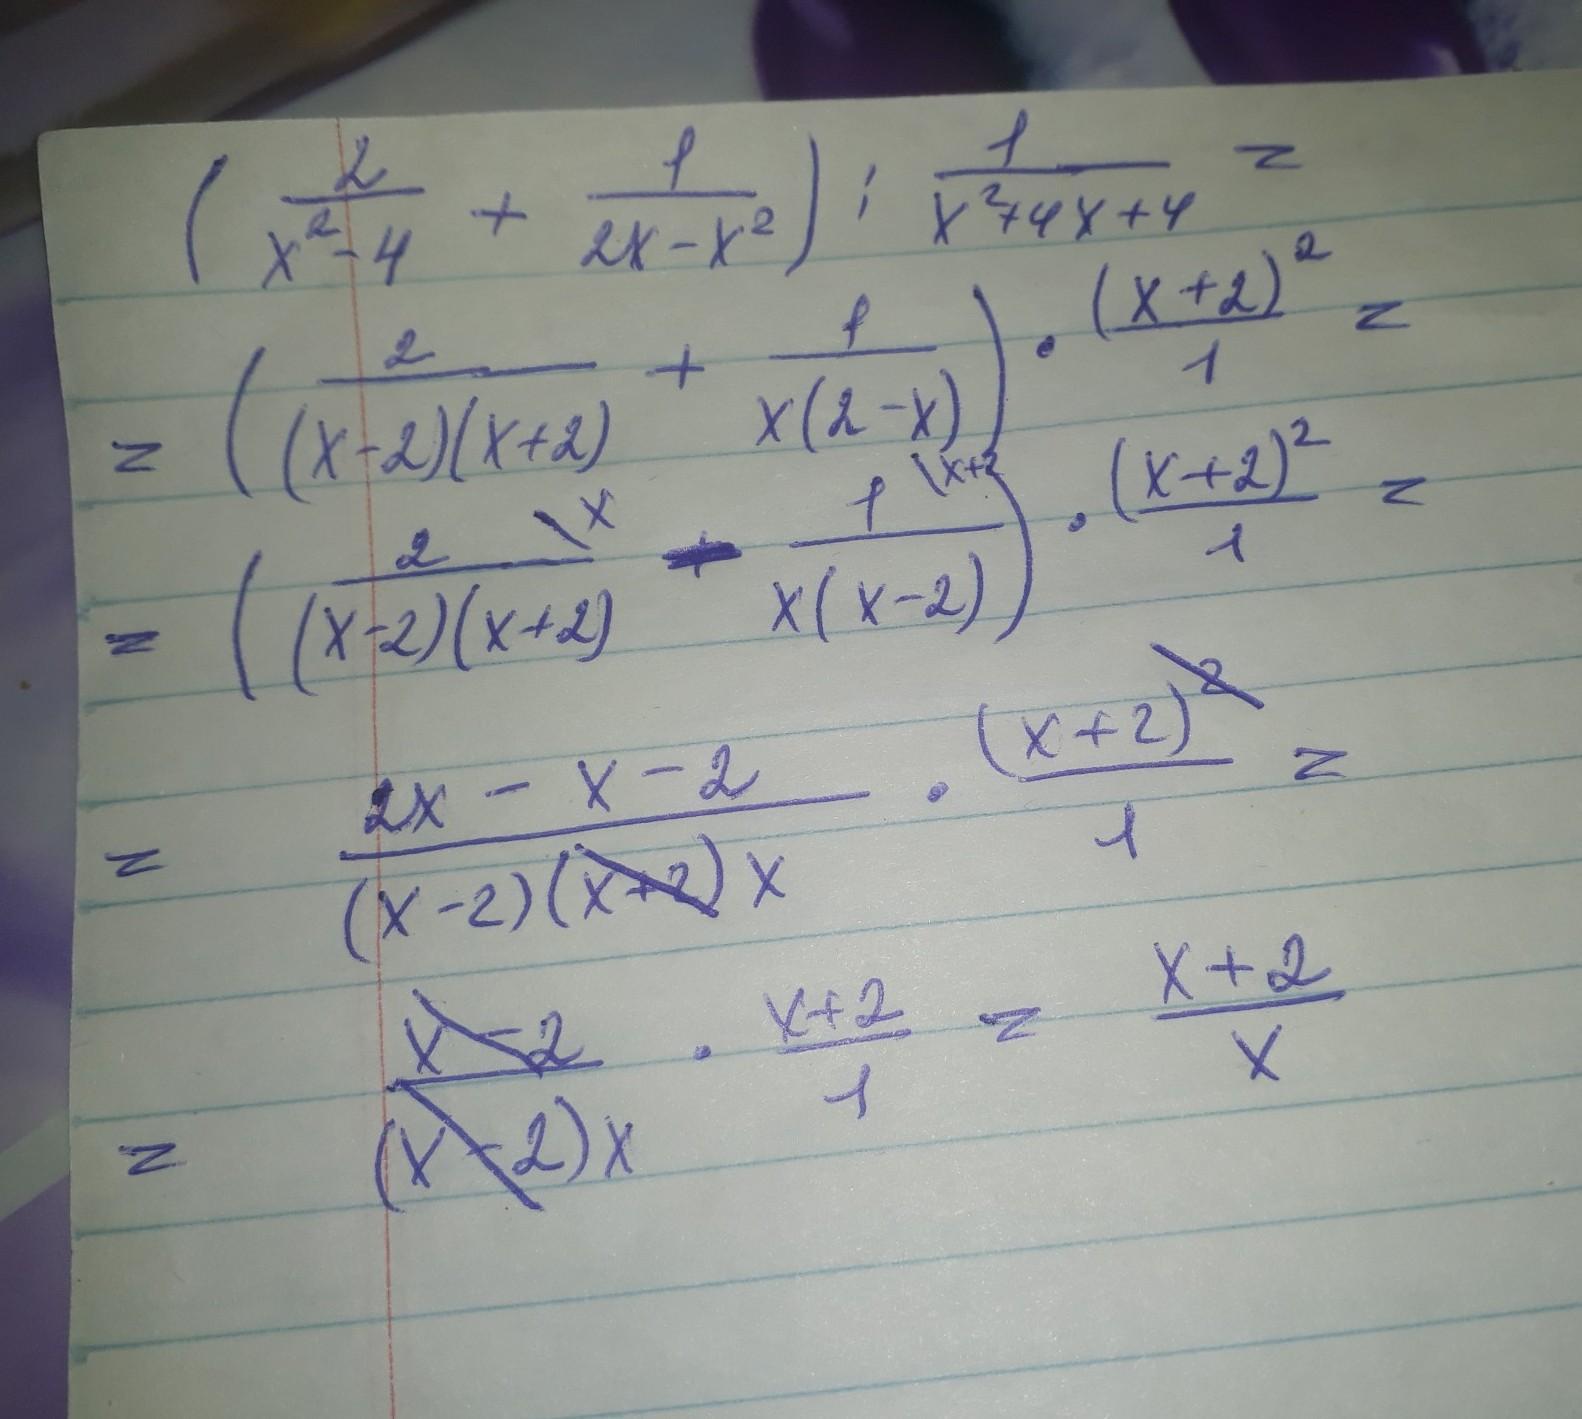 ( 2/(x²-4) + 1/(2x-x²) ) : 1/(x²+4x+4) =
= ( 2/((x-2)(x+2)) + 1/(x(2-x)) ) · (x+2)²/1 =
= ( 2\x/((x-2)(x+2)) - 1\x+2/(x(x-2)) ) · (x+2)²/1 =
= (2x - x - 2)/((x-2)(x+2)x) · (x+2)²/1 =
= (x-2)/((x-2)x) · (x+2)/1 = (x+2)/x